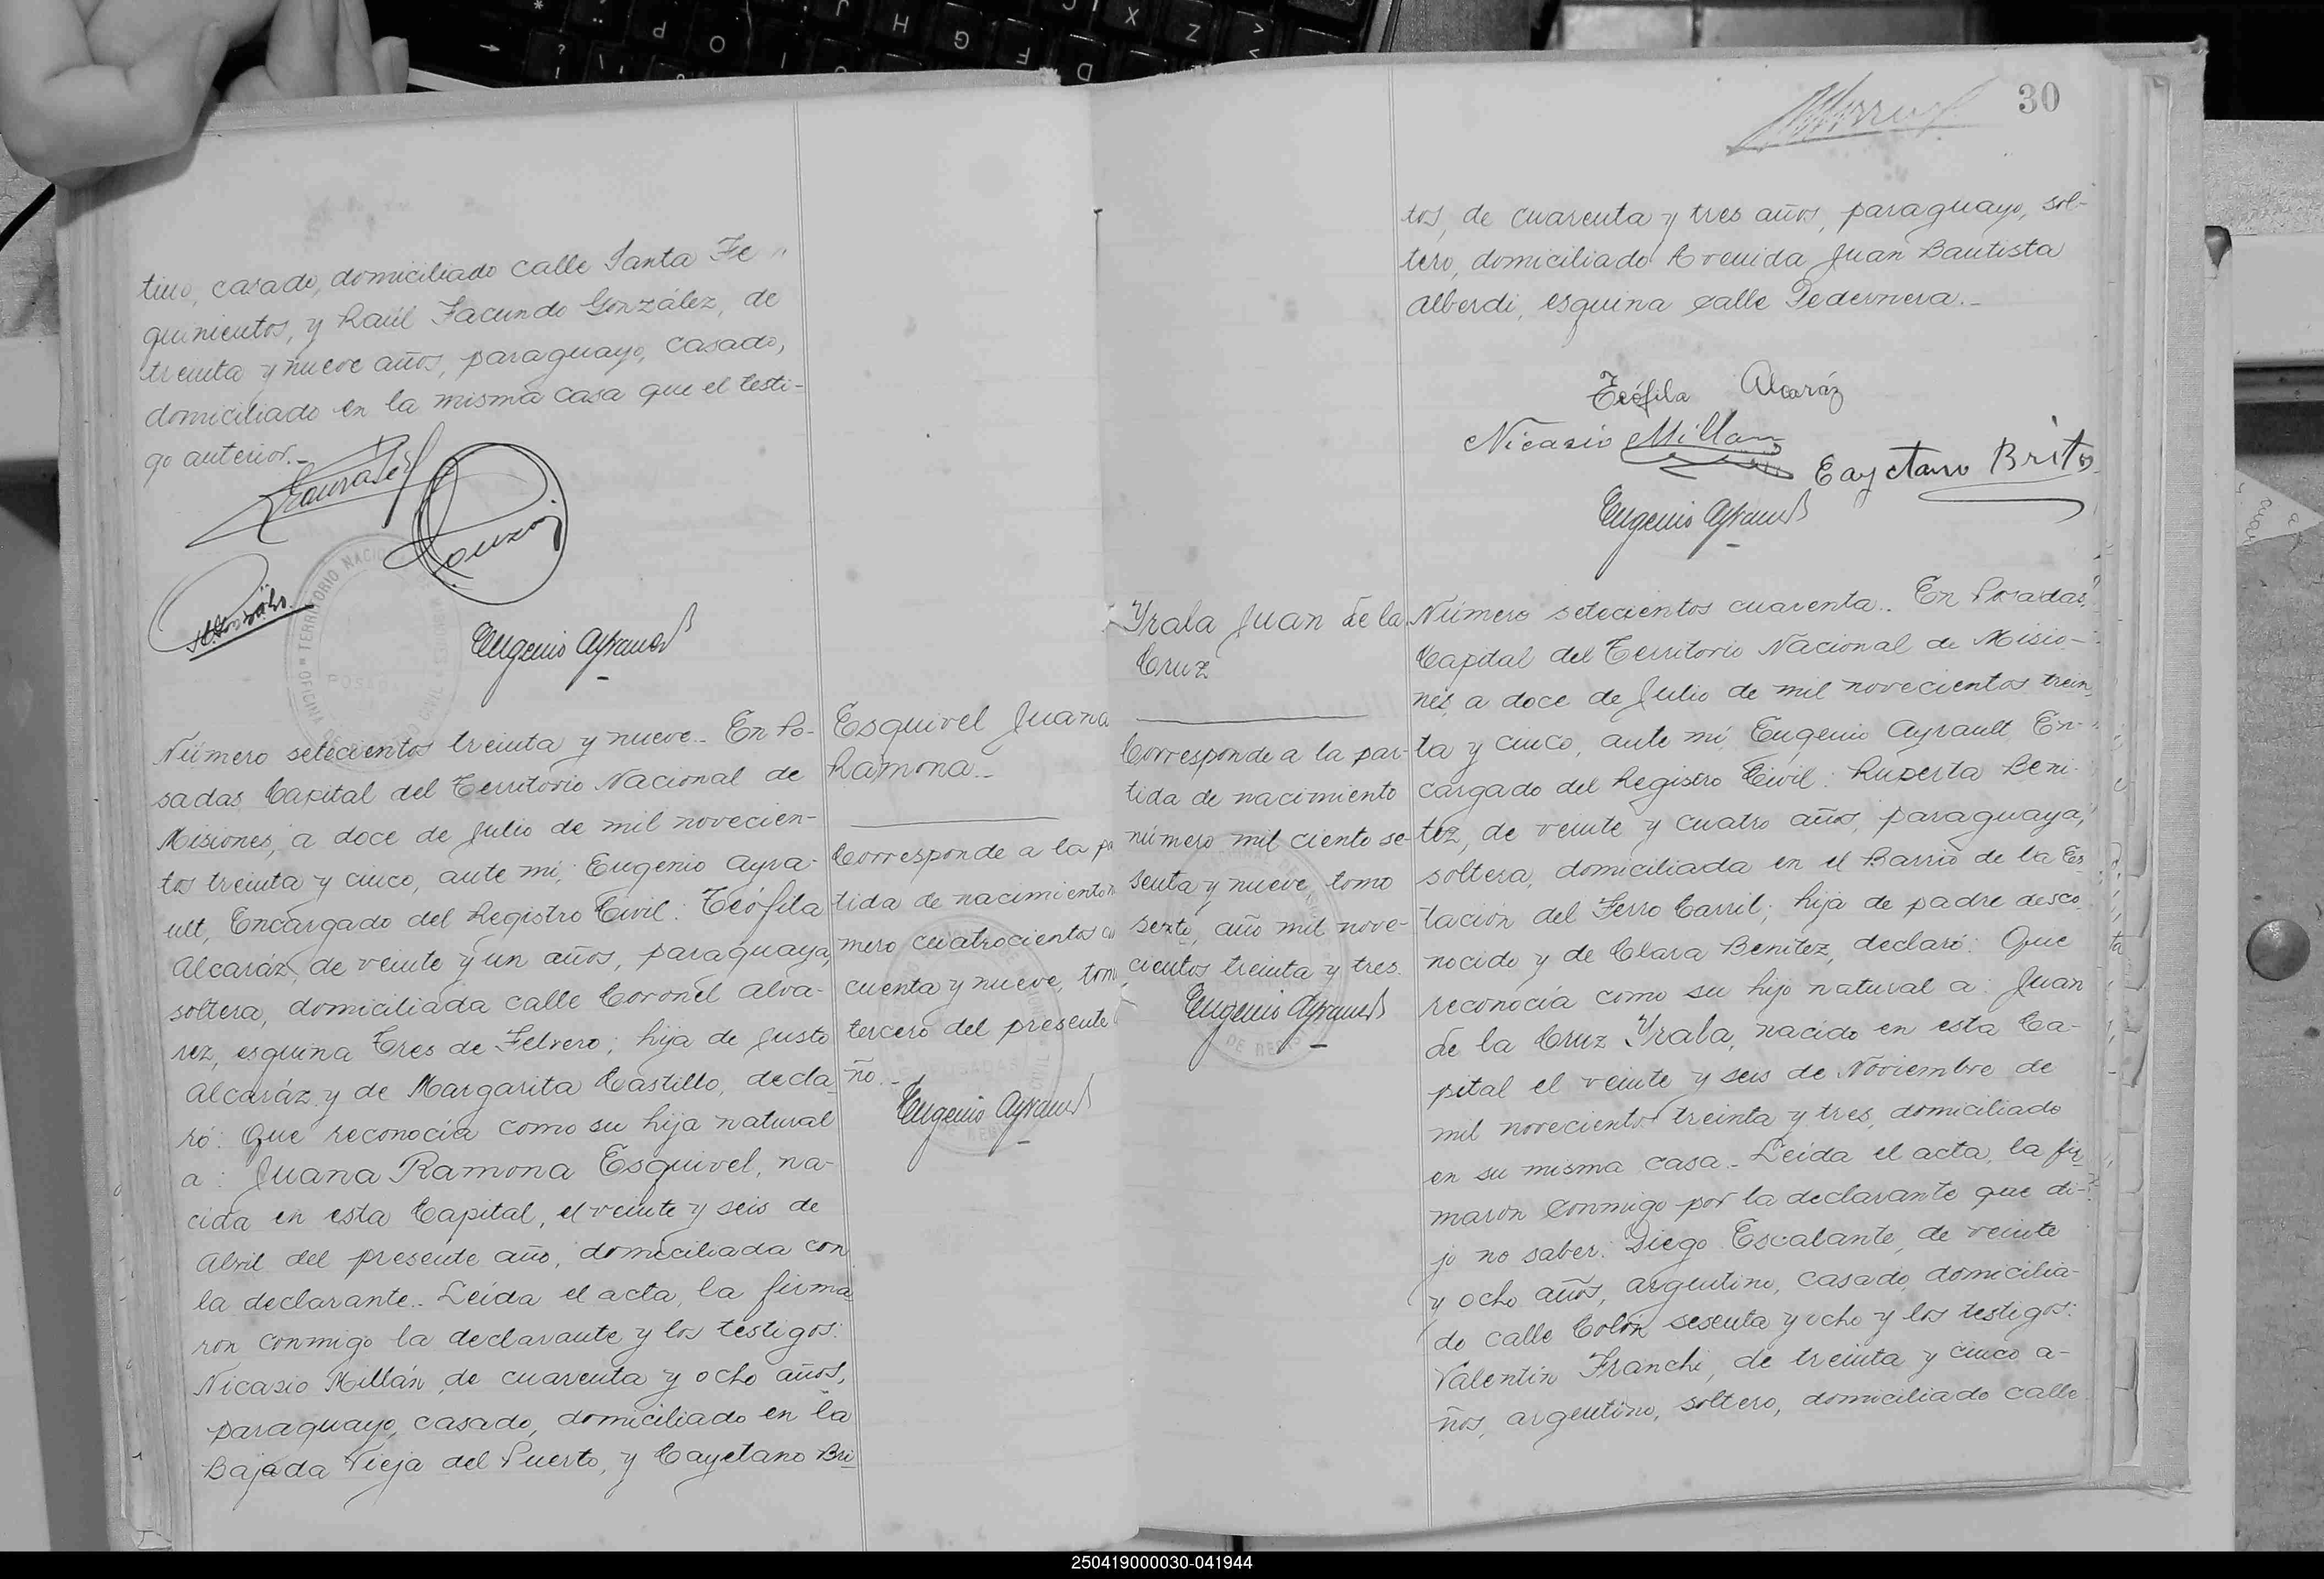 tino, casado, domiciliado calle Santa Fe "
quinientos, y Raúl Facundo González, de
treinta y nueve años, paraguayo, casado,
domiciliado en la misma casa que el testi-
go anterior.-
Eugenio Ayrault
Número setecientos treinta y nueve.- En Po-
sadas Capital del Territorio Nacional de
Misiones, a doce de Julio de mil novecien-
tos treinta y cinco, ante mí, Eugenio Ayra-
ult, Encargado del Registro Civil: Teófila
Alcaráz, de veinte y un años, paraguaya,
soltera, domiciliada calle Coronel Alva-
rez, esquina Tres de Febrero; hija de Justo
Alcaráz y de Margarita Castillo, decla-
ró: Que reconocía como su hija natural
a: Juana Ramona Esquivel, na-
cida en esta Capital, el veinte y seis de
Abril del presente año, domiciliada con
la declarante.- Leída el acta, la firma-
ron conmigo la declarante y los testigos:
Nicasio Millán, de cuarenta y ocho años,
paraguayo, casado, domiciliado en la
Bajada Vieja del Puerto, y Cayetano Bri-
Esquivel Juana
Ramona.-
Corresponde a la pa
tida de nacimiento n
mero cuatrocientos ci
cuenta y nueve, tom
tercero del presente
ño.-
Eugenio Ayrault
30
tos, de cuarenta y tres años, paraguayo, sol-
tero, domiciliado Avenida Juan Bautista
Alberdi, esquina calle Pedernera.-
Teófila Alcaráz
Nicasio Millan
Cayetano Britos
Eugenio Ayrault
Yrala Juan de la
Cruz
Corresponde a la par-
tida de nacimiento
número mil ciento se-
senta y nueve, tomo
sexto, año mil nove-
cientos treinta y tres.
Eugenio Ayrault
Número setecientos cuarenta.. En Posadas,
Capital del Territorio Nacional de Misio-
nes, a doce de Julio de mil novecientos trein-
ta y cinco, ante mí, Eugenio Ayrault, En-
cargado del Registro Civil: Ruperta Beni-
tez, de veinte y cuatro años, paraguaya,
soltera, domiciliada en el Barrio de la Es-
tación del Ferro Carril; hija de padre desco-
nocido y de Clara Benítez, declaró: Que
reconocía como su hijo natural a: Juan
de la Cruz Yrala, nacido en esta Ca-
pital el veinte y seis de Noviembre de
mil novecientos treinta y tres, domiciliado
en su misma casa.- Leída el acta, la fir-
maron conmigo por la declarante que di-
jo no saber: Diego Escalante, de veinte
y ocho años, argentino, casado, domicilia-
do calle Colón sesenta y ocho y los testigos:
Valentín Franchi, de treinta y cinco a-
ños, argentino, soltero, domiciliado calle
250419000030-041944